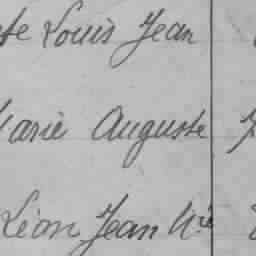 te Louis Jean
Marie Auguste
Léon Jean Mie